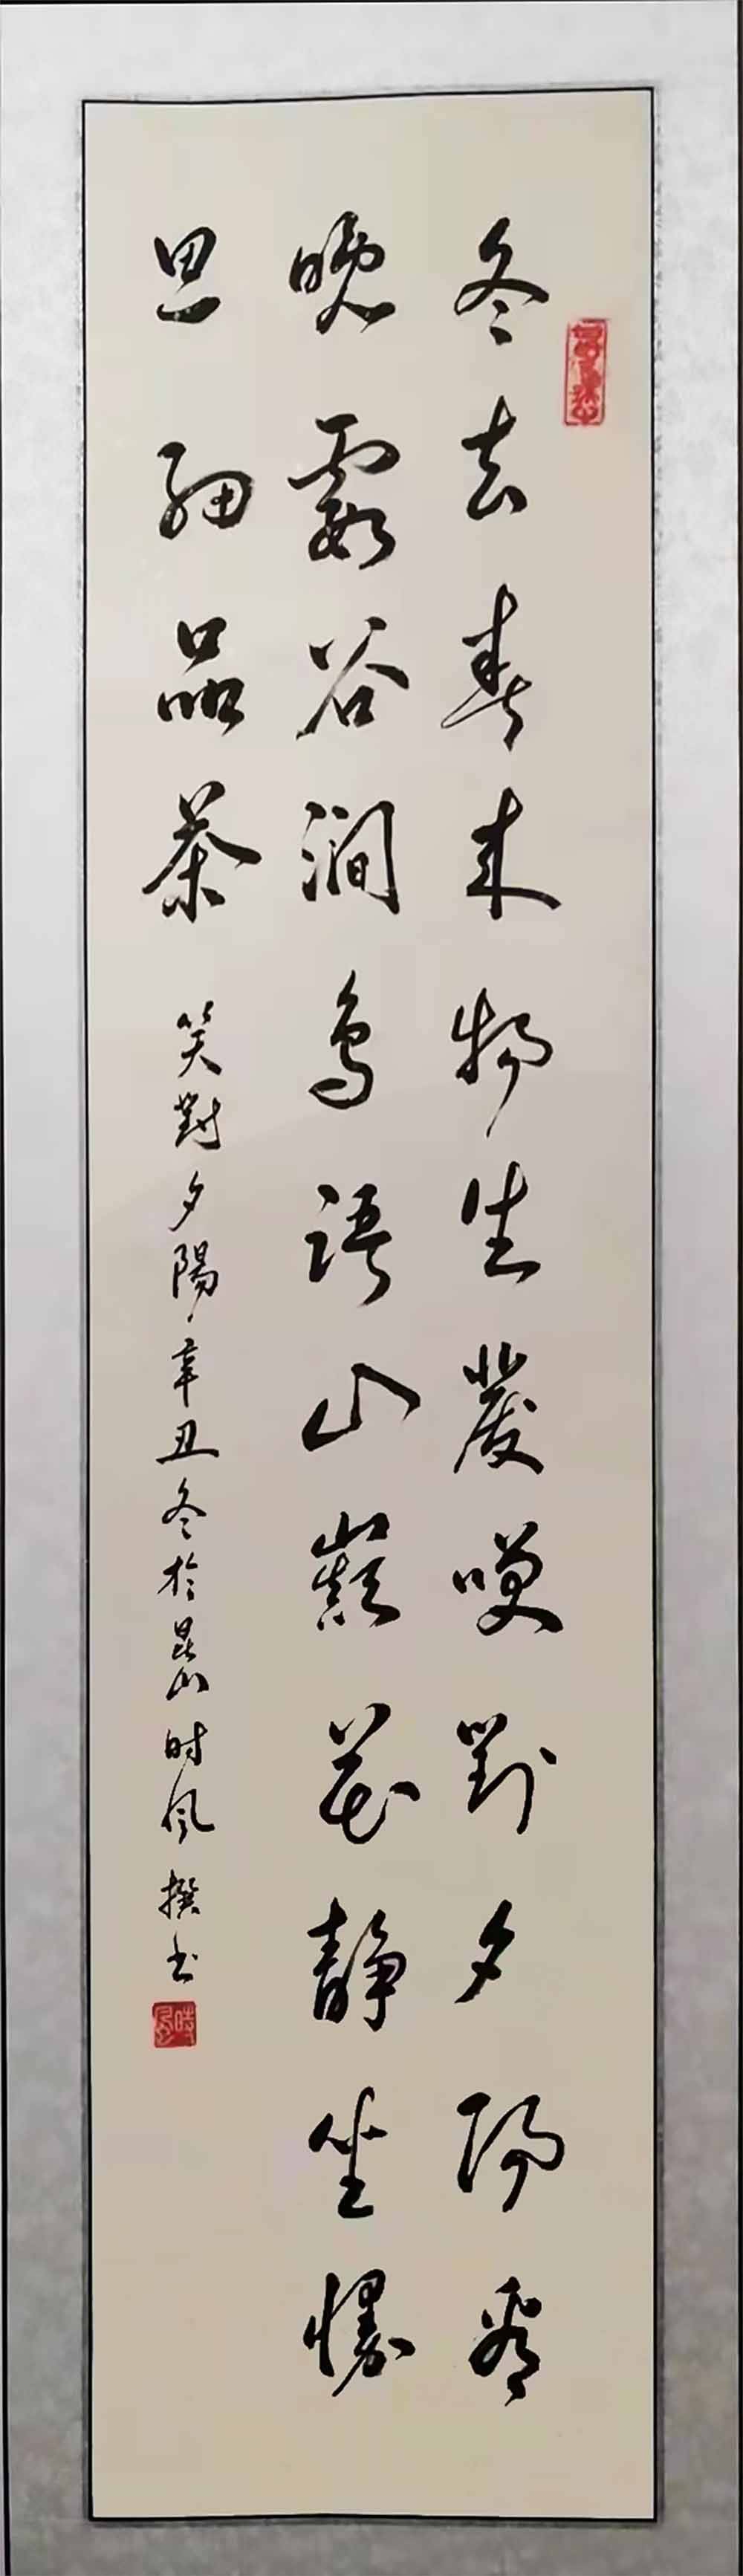 冬去春来物生發咲對夕陽看
晚霞谷澗鳥語山巔花靜坐慢
思細品茶 笑對夕陽 辛丑冬於昆山时风撰书
時風